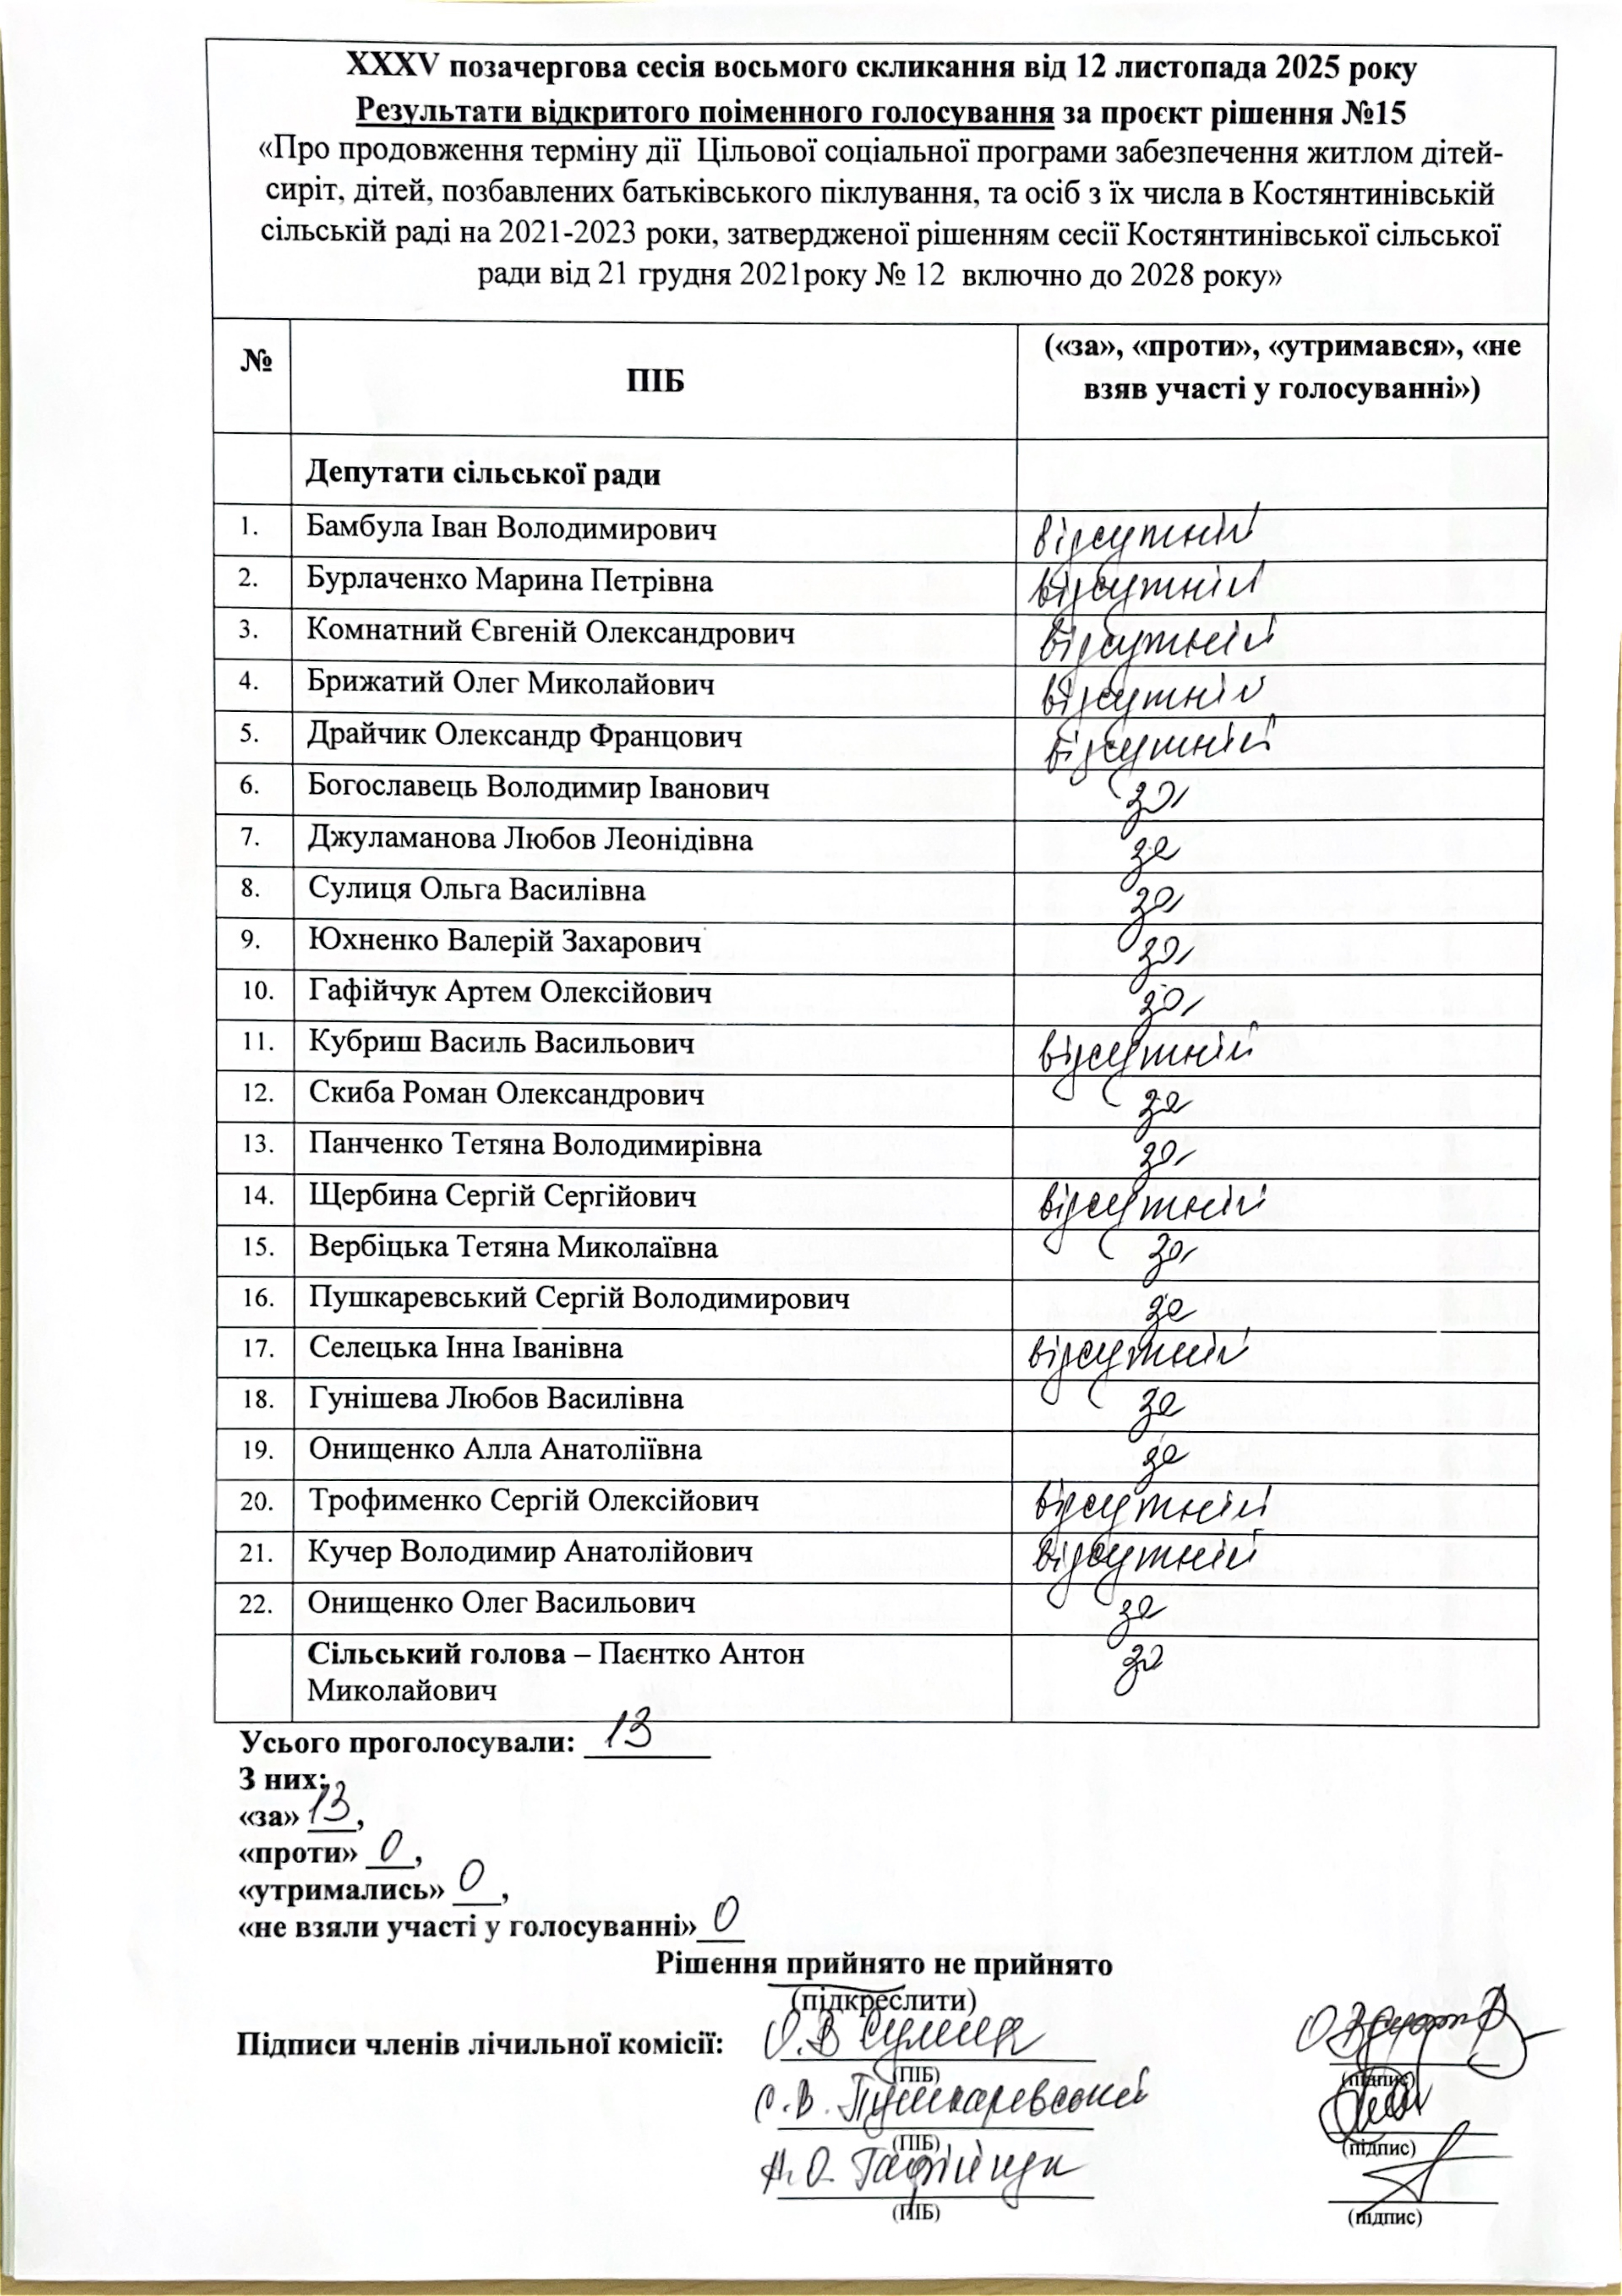 XXXV позачергова сесія восьмого скликання від 12 листопада 2025 року
Результати відкритого поіменного голосування за проєкт рішення №15
«Про продовження терміну дії Цільової соціальної програми забезпечення житлом дітей-
сиріт, дітей, позбавлених батьківського піклування, та осіб з їх числа в Костянтинівській
сільській раді на 2021-2023 роки, затвердженої рішенням сесії Костянтинівської сільської
ради від 21 грудня 2021року № 12 включно до 2028 року»
№ ПІБ («за», «проти», «утримався», «не
взяв участі у голосуванні»)
Депутати сільської ради
1. Бамбула Іван Володимирович відсутній
2. Бурлаченко Марина Петрівна відсутній
3. Комнатний Євгеній Олександрович відсутній
4. Брижатий Олег Миколайович відсутній
5. Драйчик Олександр Францович відсутній
6. Богославець Володимир Іванович за
7. Джуламанова Любов Леонідівна за
8. Сулиця Ольга Василівна за
9. Юхненко Валерій Захарович за
10. Гафійчук Артем Олексійович за
11. Кубриш Василь Васильович відсутній
12. Скиба Роман Олександрович за
13. Панченко Тетяна Володимирівна за
14. Щербина Сергій Сергійович відсутній
15. Вербіцька Тетяна Миколаївна за
16. Пушкаревський Сергій Володимирович за
17. Селецька Інна Іванівна відсутній
18. Гунішева Любов Василівна за
19. Онищенко Алла Анатоліївна за
20. Трофименко Сергій Олексійович відсутній
21. Кучер Володимир Анатолійович відсутній
22. Онищенко Олег Васильович за
Сільський голова – Паєнтко Антон за
Миколайович
Усього проголосували: 13
З них:
«за» 13,
«проти» 0,
«утримались» 0,
«не взяли участі у голосуванні» 0
Рішення прийнято не прийнято
(підкреслити)
Підписи членів лічильної комісії: О.В Сулиця
(ПІБ) (підпис)
С.В. Пушкаревський
(ПІБ) (підпис)
А.О. Гафійчук
(ПІБ) (підпис)